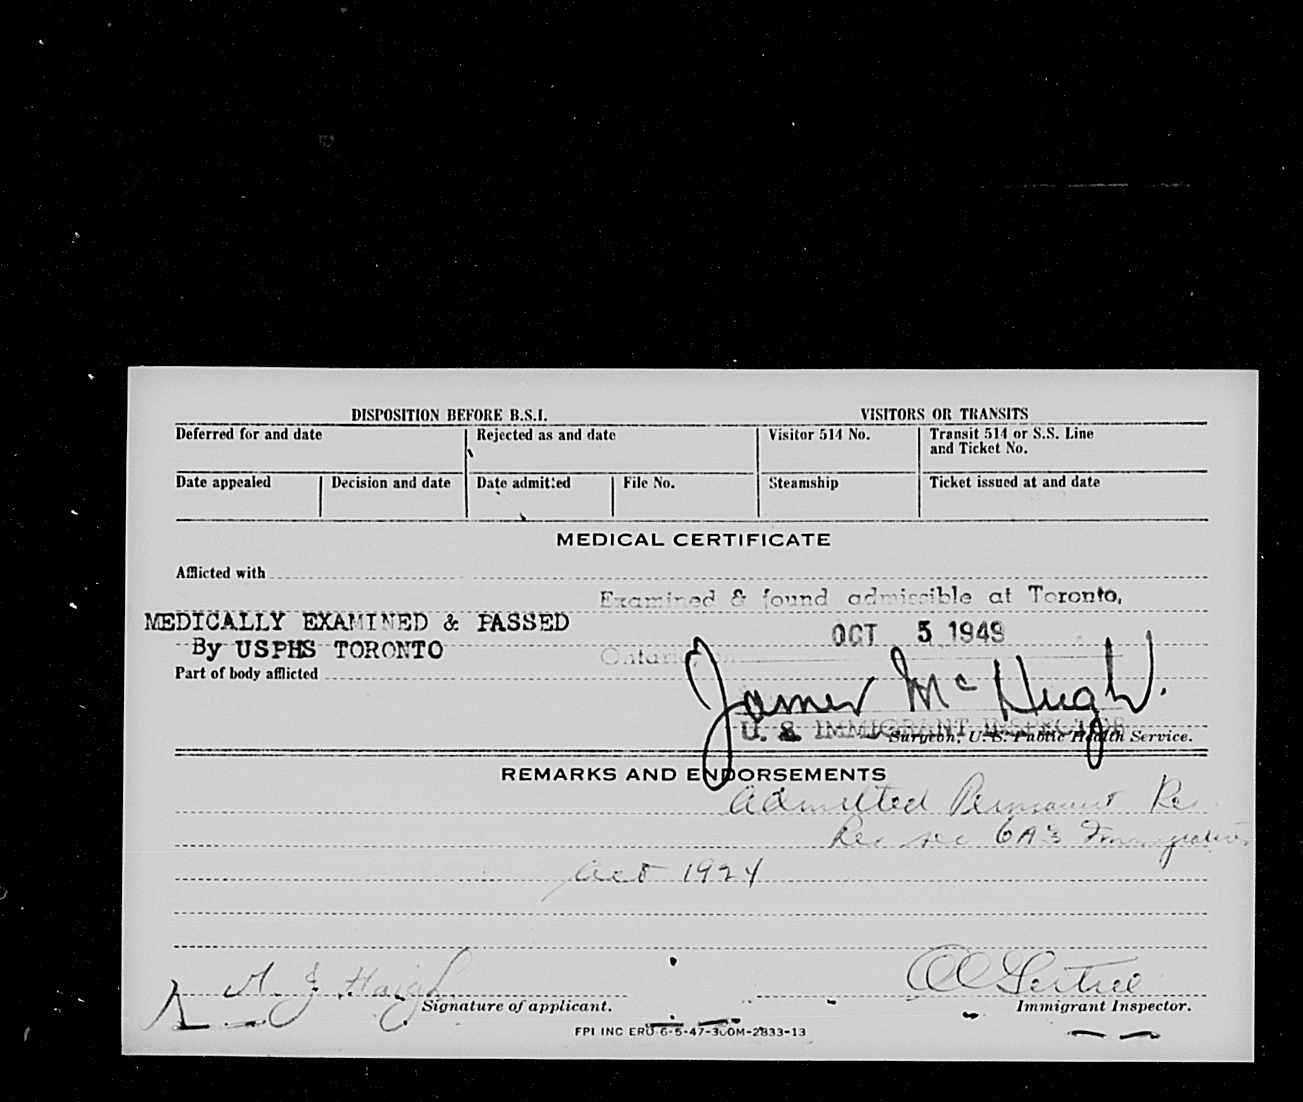 DISPOSITION BEFORE B.S.I. VISITORS OR TRANSITS
Deferred for and date Rejected as and date Visitor 514 No. Transit 514 or S.S. Line
and Ticket No.
Date appealed Decision and date Date admitted File No. Steamship Ticket issued at and date
MEDICAL CERTIFICATE
Afflicted with
Examined & found admissible at Toronto,
MEDICALLY EXAMINED & PASSED
OCT 5 1949
By USPHS TORONTO
Ontario, on
Part of body afflicted
James McHugh
U. S. IMMIGRANT INSPECTOR
Surgeon, U. S. Public Health Service.
REMARKS AND ENDORSEMENTS
Admitted Permanent Res
sec 6A3 Immigration
Act 1924
Haigh
Signature of applicant. Immigrant Inspector.
FPI INC ERO 6-5-47-300M-2833-13